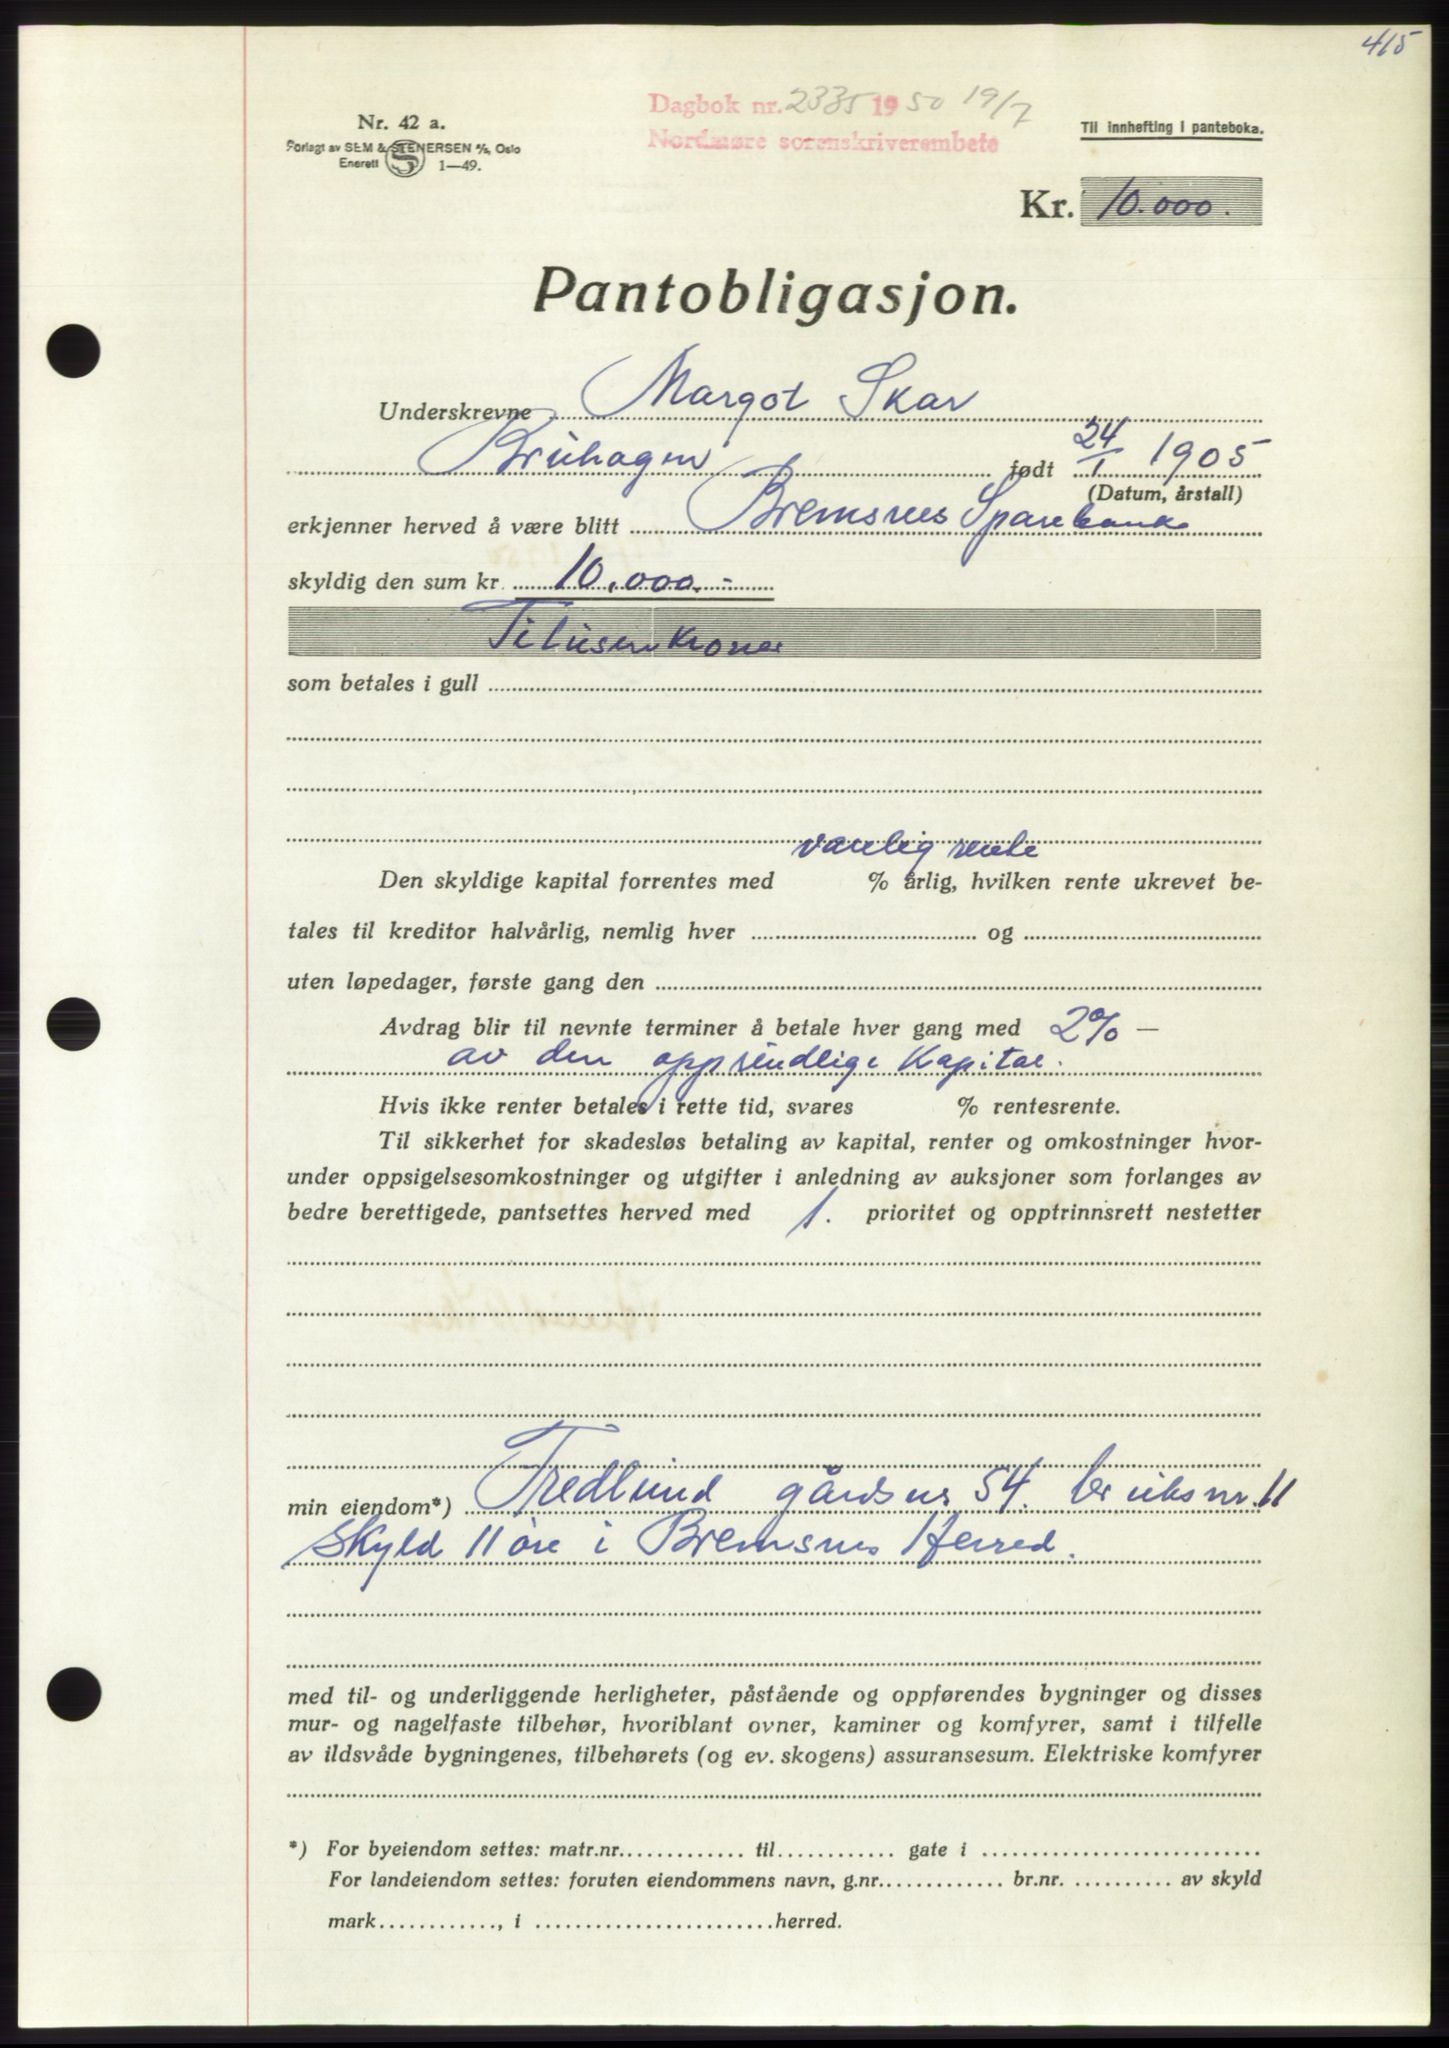 415
Dagbok nr. 2335 1950 19/7
Nordmøre sorenskriverembete
Nr. 42 a.
Forlagt av SEM & STENERSEN A/S, Oslo
Enerett S 1—49.
Til innhefting i panteboka.
Kr. 10.000.
Pantobligasjon.
Underskrevne Margot Skar
Bruhagen født 24/1 1905
(Datum, årstall)
erkjenner herved å være blitt Bremsnes Sparebank
skyldig den sum kr. 10.000.-
Titusen kroner
som betales i gull
vanlig rente
Den skyldige kapital forrentes med % årlig, hvilken rente ukrevet be-
tales til kreditor halvårlig, nemlig hver og
uten løpedager, første gang den
Avdrag blir til nevnte terminer å betale hver gang med 2% —
av den opprindlige Kapital.
Hvis ikke renter betales i rette tid, svares % rentesrente.
Til sikkerhet for skadesløs betaling av kapital, renter og omkostninger hvor-
under oppsigelsesomkostninger og utgifter i anledning av auksjoner som forlanges av
bedre berettigede, pantsettes herved med 1. prioritet og opptrinnsrett nestetter
min eiendom*) Fredlund gårdsnr 54. bruksnr. 11
Skyld 11 øre i Bremsnes Herred.
med til- og underliggende herligheter, påstående og oppførendes bygninger og disses
mur- og nagelfaste tilbehør, hvoriblant ovner, kaminer og komfyrer, samt i tilfelle
av ildsvåde bygningenes, tilbehørets (og ev. skogens) assuransesum. Elektriske komfyrer
*) For byeiendom settes: matr.nr. til gate i
For landeiendom settes: foruten eiendommens navn, g.nr. br.nr. av skyld
mark , i herred.